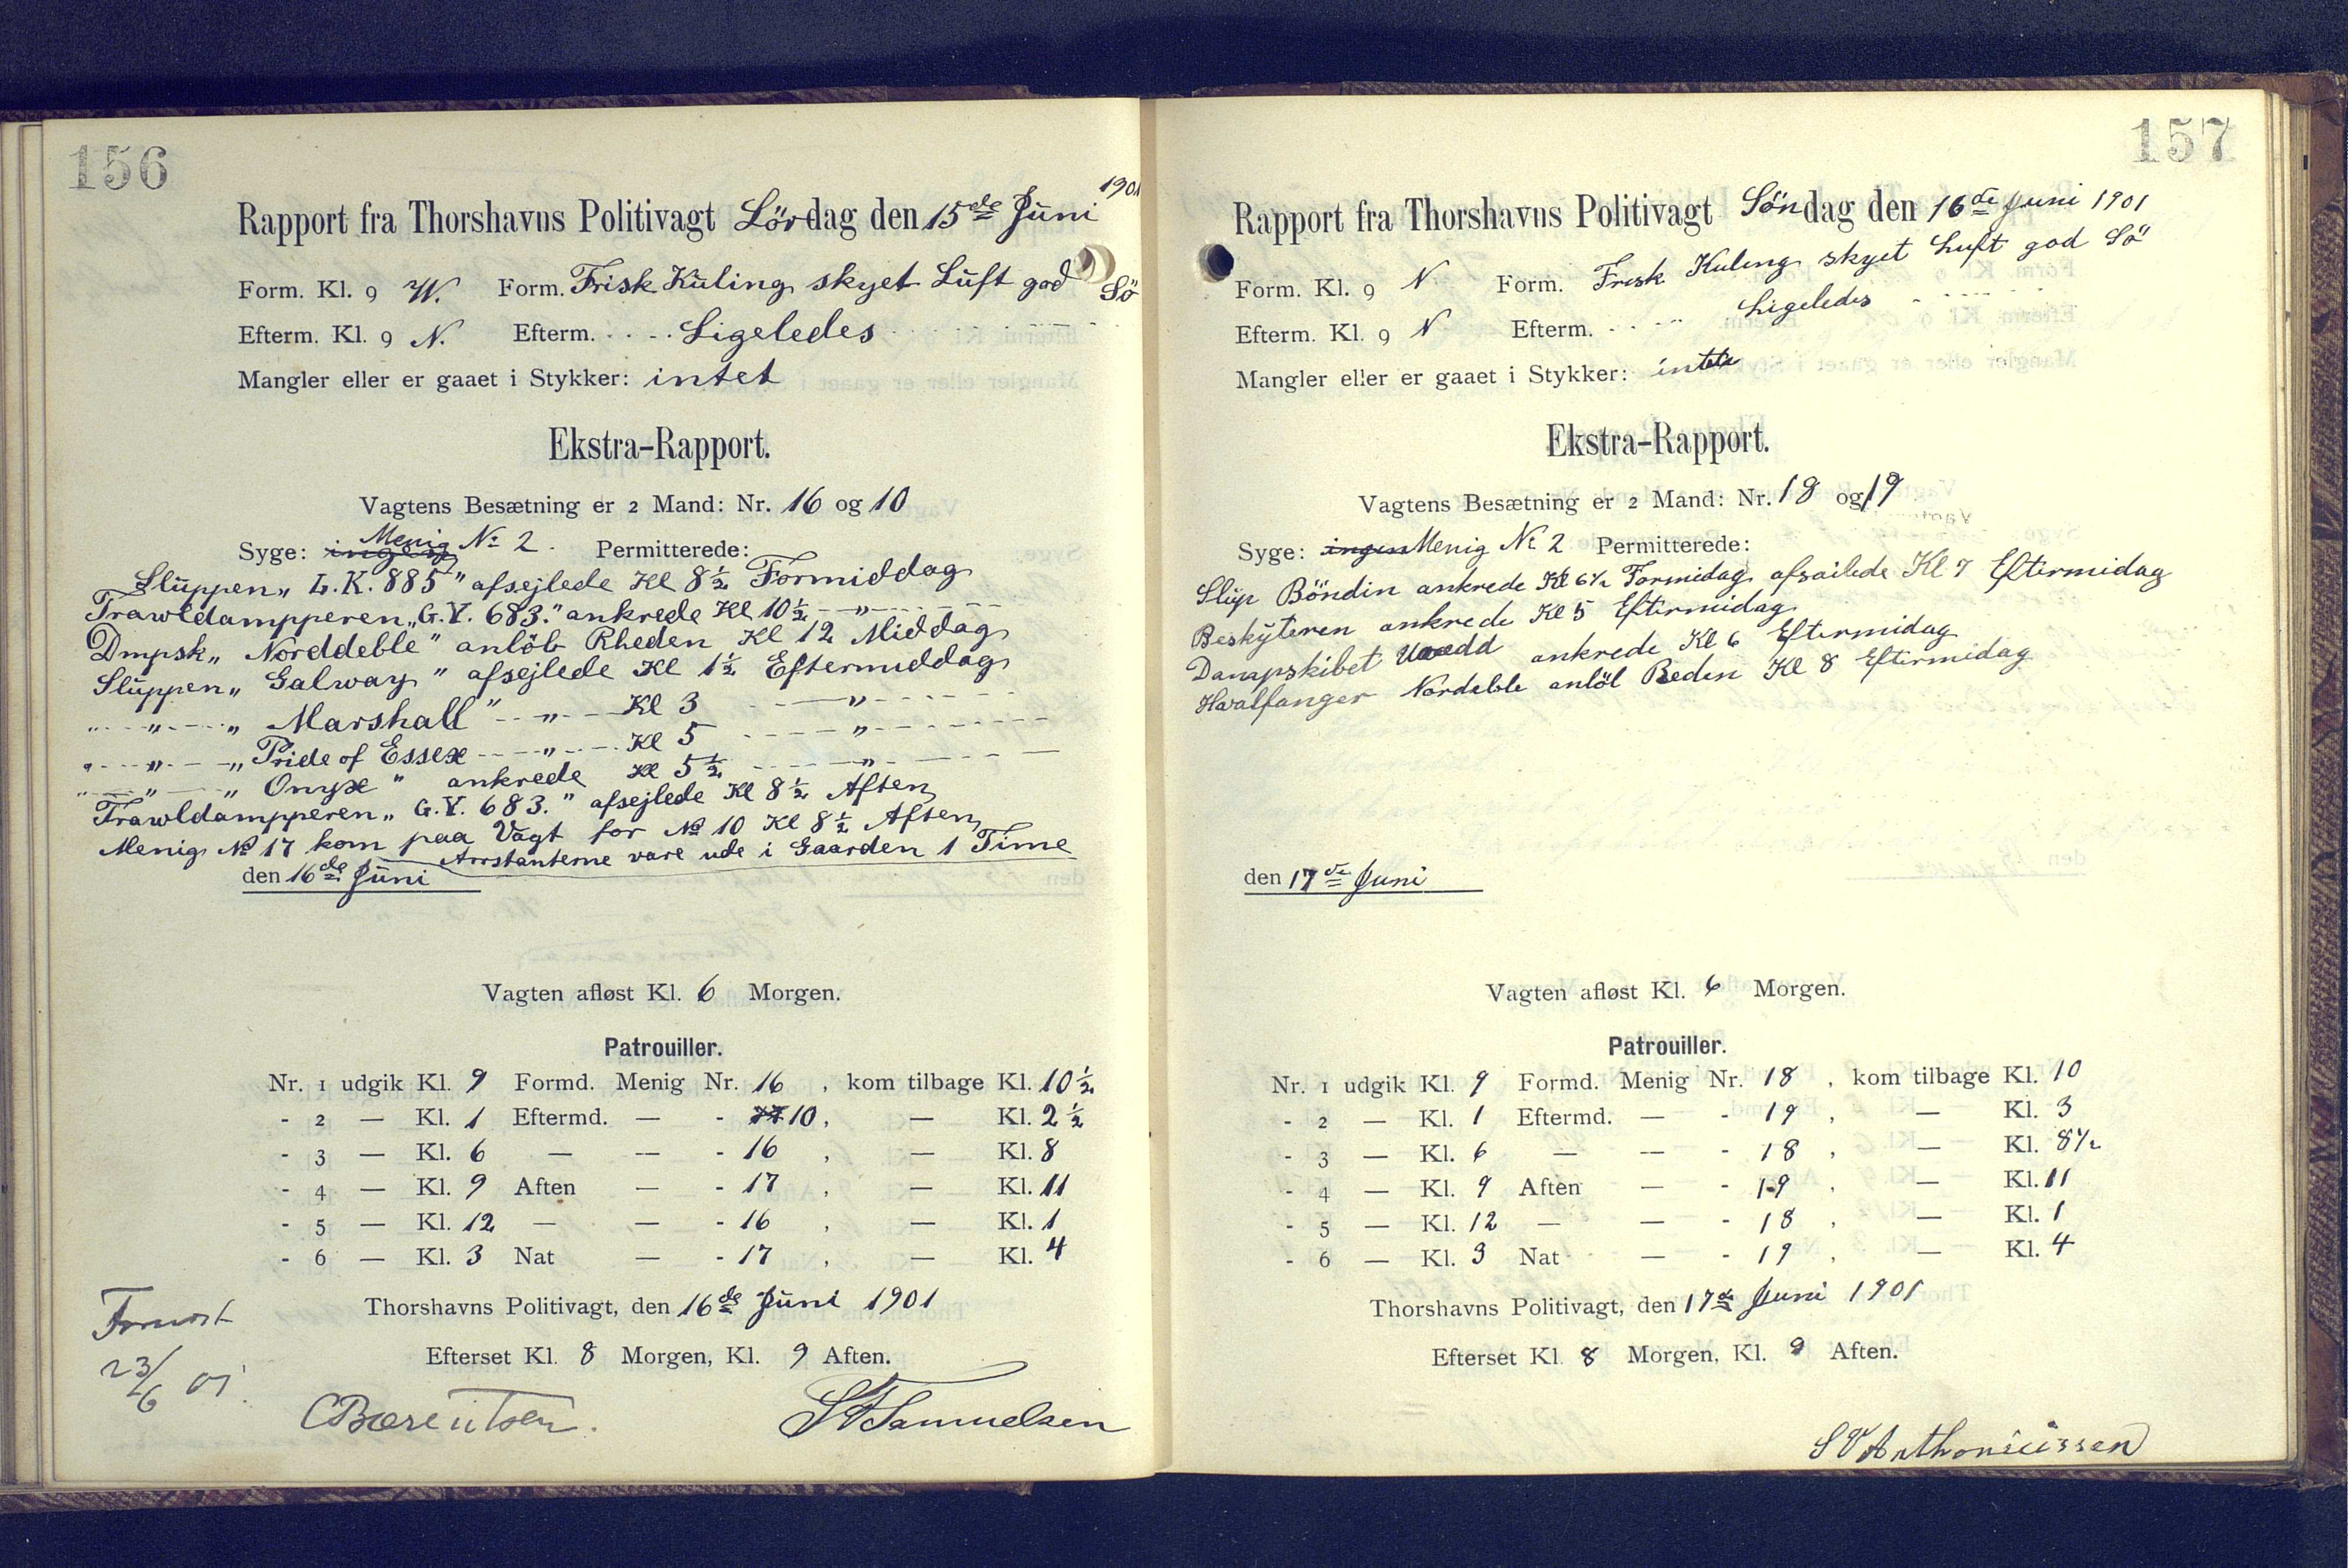 156
1901
Rapport fra Thorshavns Politivagt Lördag den 15de Juni
Form. Kl. 9 W. Form. Frisk Kuling skyet Luft god Sö
Efterm. Kl. 9 N. Efterm. Ligeledes
Mangler eller er gaaet i Stykker: intet
Ekstra-Rapport.
Vagtens Besætning er 2 Mand: Nr. 16 og 10
Syge: ingen Menig No 2. Permitterede:
Sluppen „L.K. 885" afsejlede Kl 8½ Formiddag
Trawldampperen „G.Y. 683." ankrede Kl 10½ — „ —
Dmpsk „Norddeble" anlöb Rheden Kl 12 Middag
Sluppen „Galway" afsejlede Kl 1½ Eftermiddag
— „ — „Marshall" — „ — Kl 3 — „ —
— „ — „Pride of Essex — „ — Kl 5 — „ —
— „ — „Onyx" ankrede Kl 5½ — „ —
Trawldampperen „G.Y. 683." afsejlede Kl 8½ Aften
Menig No 17 kom paa Vagt for No 10 Kl 8½ Aften
Arrstanterne vare ude i Gaarden 1 Time
den 16de Juni
Vagten afløst Kl. 6 Morgen.
Patrouiller.
Nr. 1 udgik Kl. 9 Formd. Menig Nr. 16, kom tilbage Kl. 10½
- 2 — Kl. 1 Eftermd. — - 10, — Kl. 2½
- 3 — Kl. 6 — — - 16, — Kl. 8
- 4 — Kl. 9 Aften — - 17, — Kl. 11
- 5 — Kl. 12 — — - 16, — Kl. 1
- 6 — Kl. 3 Nat — - 17, — Kl. 4
Thorshavns Politivagt, den 16de Juni 1901
Efterset Kl. 8 Morgen, Kl. 9 Aften.
23/6 01.
CBærentsen. Samuelsen
157
Rapport fra Thorshavns Politivagt Söndag den 16de Juni 1901
Form. Kl. 9 N Form. Frisk Kuling skyet Luft god Sö
Efterm. Kl. 9 N Efterm. Ligeledes
Mangler eller er gaaet i Stykker: intet
Ekstra-Rapport.
Vagtens Besætning er 2 Mand: Nr. 18 og 19
Syge: ingen Menig No 2 Permitterede:
Slup Böndin ankrede Kl 6½ Formidag afsailede Kl 7 Eftermidag
Beskyteren ankrede Kl 5 Eftermidag
Dampskibet ankrede Kl 6 Eftermidag
Hvalfanger Nordeble anlöl Reden Kl 8 Eftermidag
den 17de Juni
Vagten afløst Kl. 6 Morgen.
Patrouiller.
Nr. 1 udgik Kl. 9 Formd. Menig Nr. 18, kom tilbage Kl. 10
- 2 — Kl. 1 Eftermd. — - 19, — Kl. 3
- 3 — Kl. 6 — — - 18, — Kl. 8½
- 4 — Kl. 9 Aften — - 19, — Kl. 11
- 5 — Kl. 12 — — - 18, — Kl. 1
- 6 — Kl. 3 Nat — - 19, — Kl. 4
Thorshavns Politivagt, den 17de Juni 1901
Efterset Kl. 8 Morgen, Kl. 9 Aften.
SVAnthoniussen